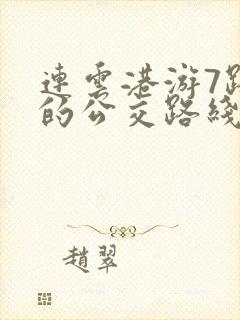 連雲港游7路
的公交路綫
趙翠